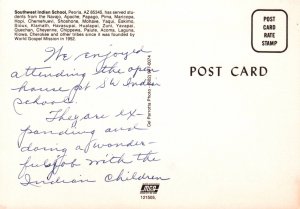 Southwest Indian School, Peoria, AZ 85345, has served students
from the Navajo, Apache, Papago, Pima, Maricopa,
Hopi, Chemehuevi, Shoshone, Mohave, Yaqui, Eskimo,
Sioux, Klamath, Havasupai, Hualapai, Zuni, Yavapai,
Quechan, Cheyenne, Chippewa, Paiute, Acoma, Laguna,
Kiowa, Cherokee and other tribes since it was founded by
World Gospel Mission in 1952.
We enjoyed
attending the open
house at SW Indian
School.
They are ex-
panding and
doing a wonder-
ful job with the
Indian Children
POST CARD
POST
CARD
RATE
STAMP
121505